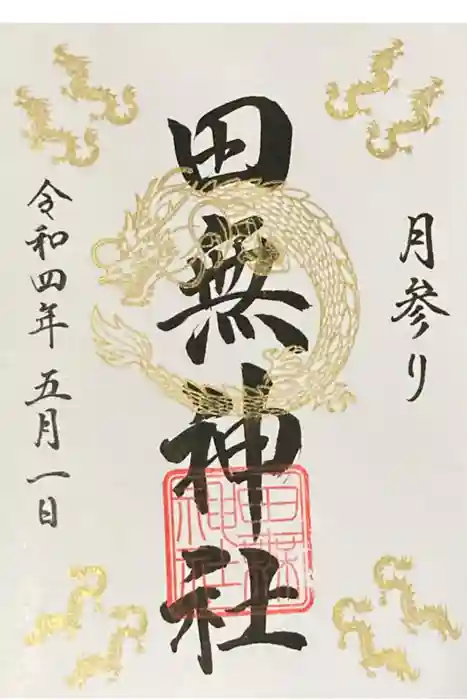 月参り
田無神社
田無神社
令和四年 五月一日